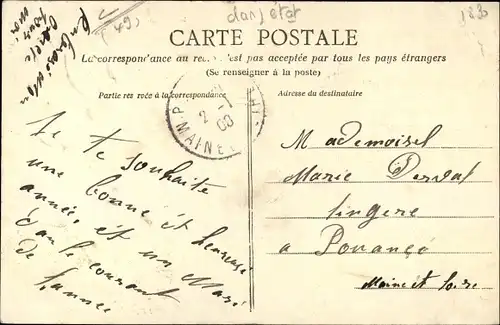 (49)
dans état
1830
CARTE POSTALE
La correspondance au recto n'est pas acceptée par tous les pays étrangers
(Se renseigner à la poste)
Partie réservée à la correspondance
Adresse du destinataire
2 -1
08
MAINE
Je te souhaite
une bonne et heureuse
année, et un Mari
dan le courant
de l'année
Mademoisel
Marie Derval
lingere
a Pouancé
Maine et Loire